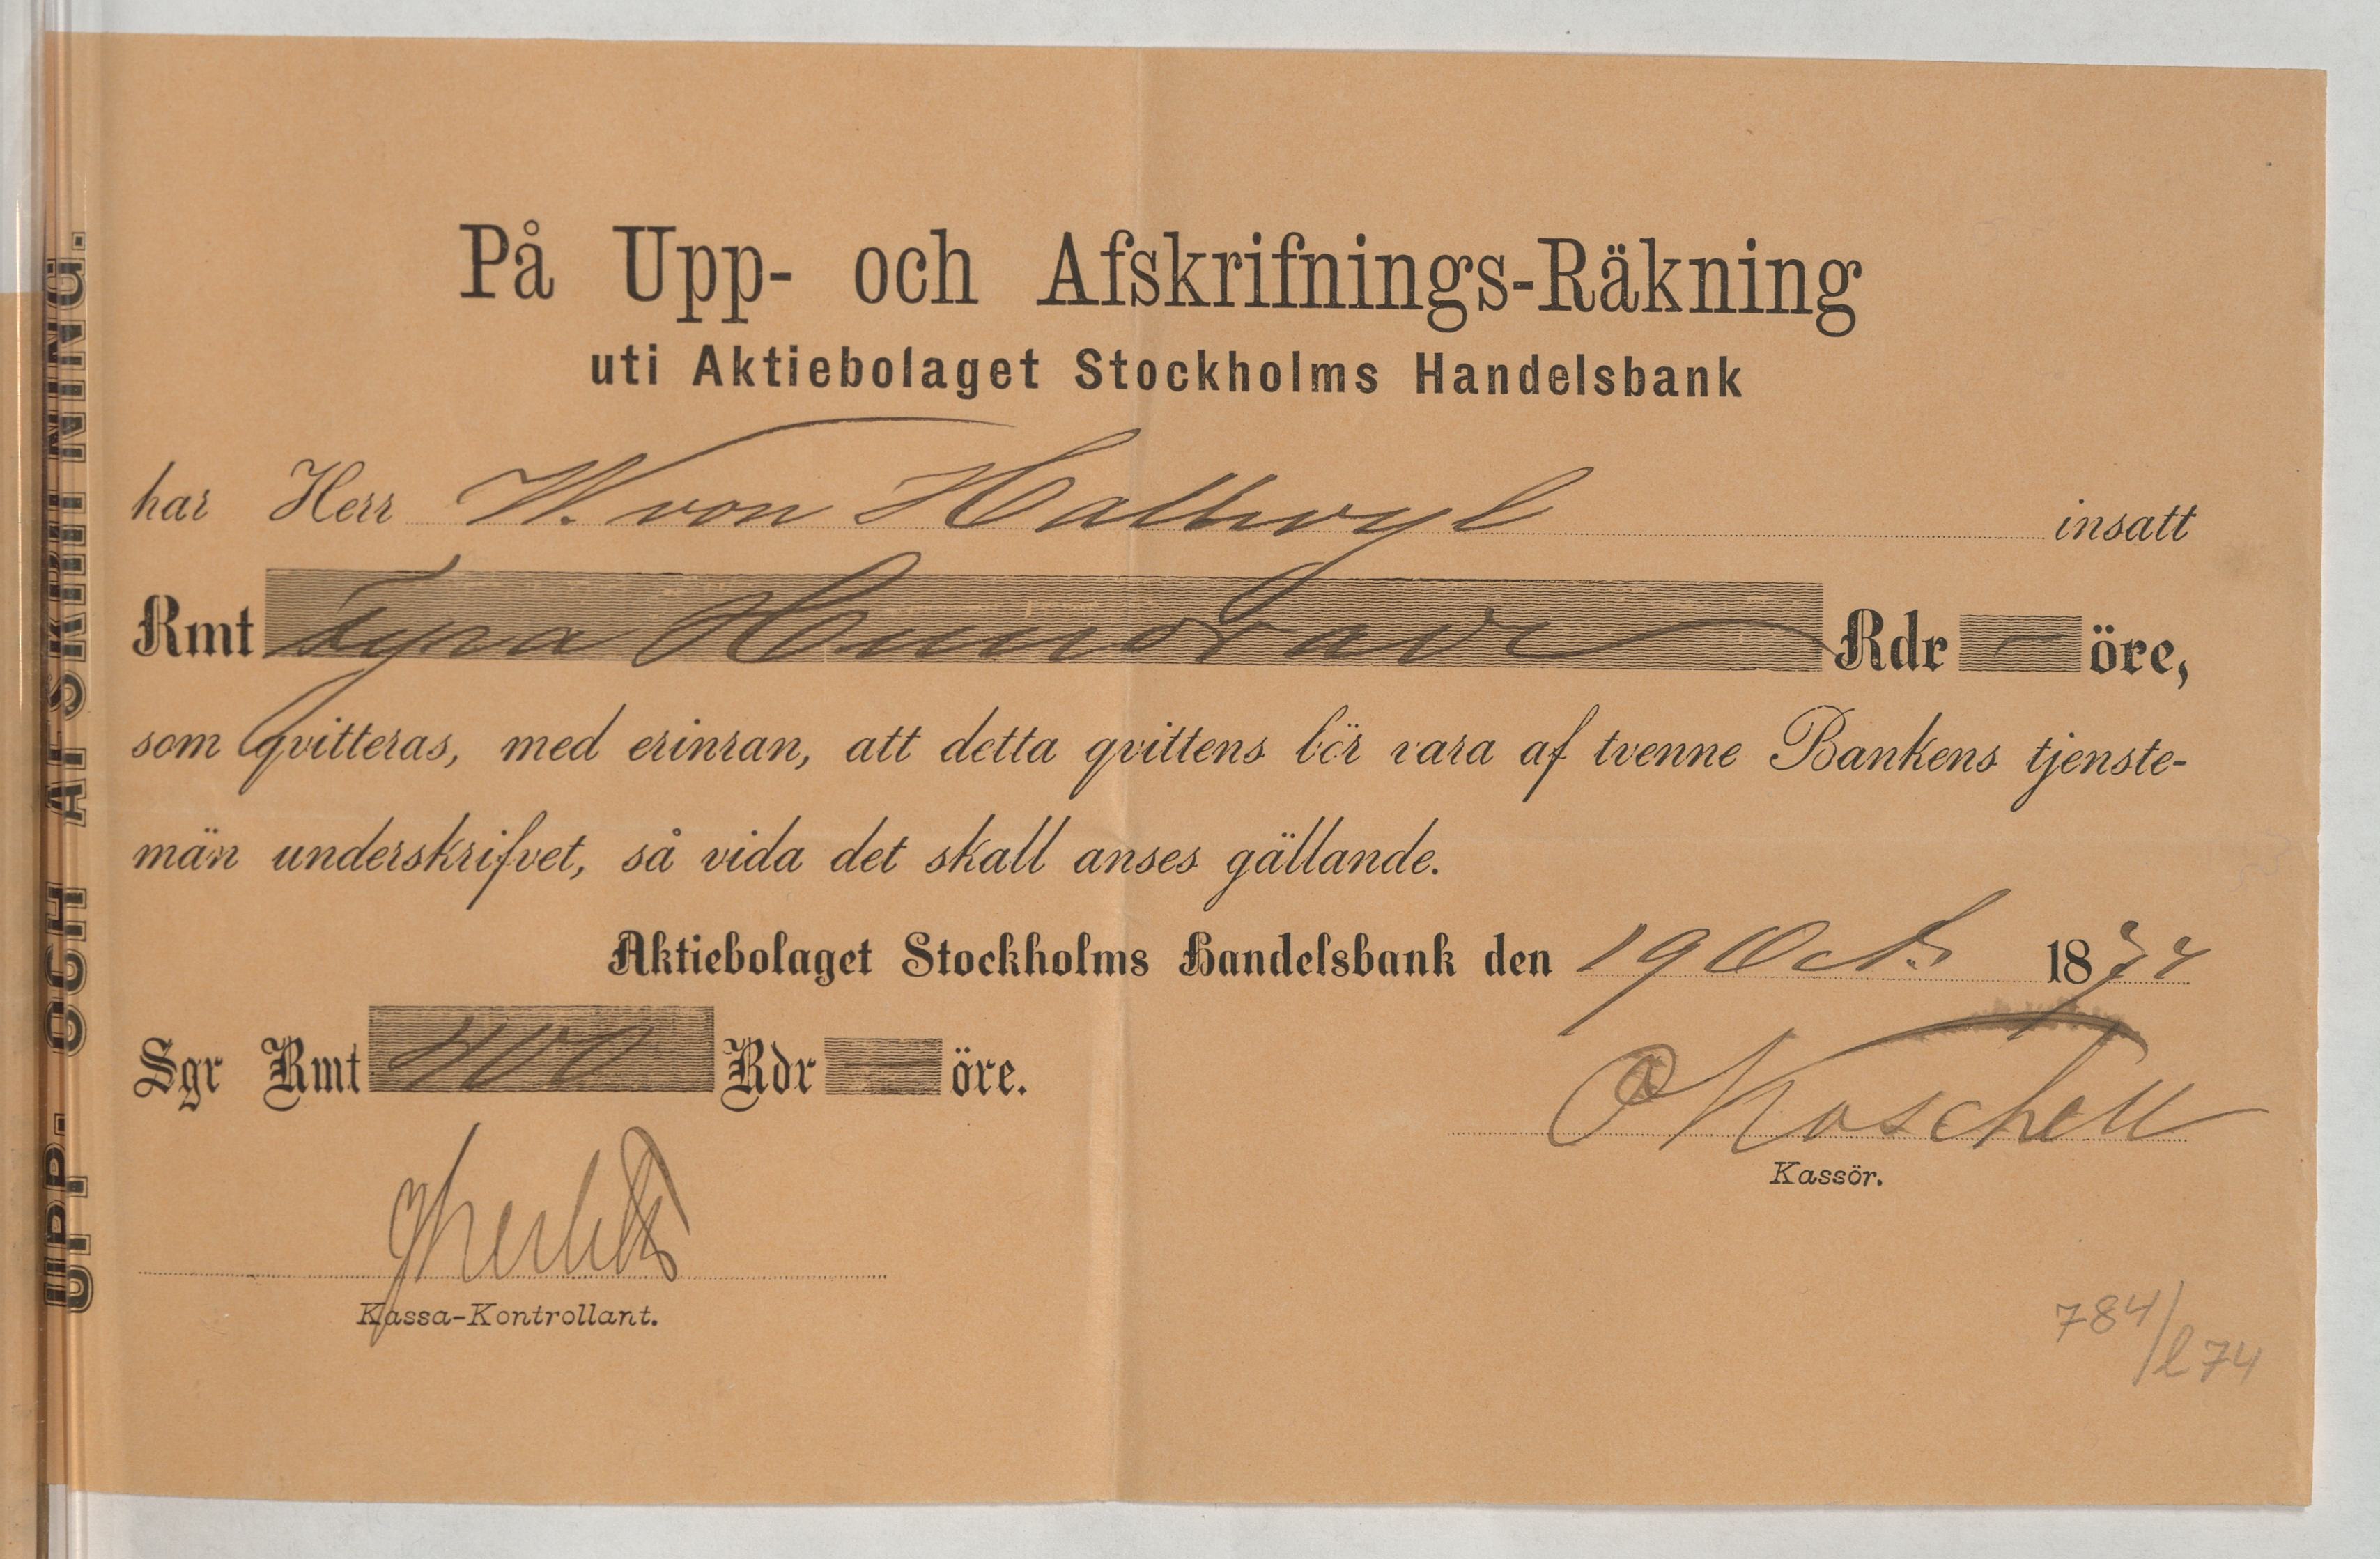 På Upp- och Afskrifnings-Räkning
uti Aktiebolaget Stockholms Handelsbank
har Herr W. von Hallwyl insatt
Rmt Fyra Hundrade Rdr — öre,
som qvitteras, med erinran, att detta qvittens bör vara af tvenne Bankens tjenste-
män underskrifvet, så vida det skall anses gällande.
Aktiebolaget Stockholms Handelsbank den 19 Oct. 1874
Sgr Rmt 400 Rdr — öre.
Koschell
Kassör.
Kassa-Kontrollant.
784/l 74
UPP- OCH AFSKRIFNING.